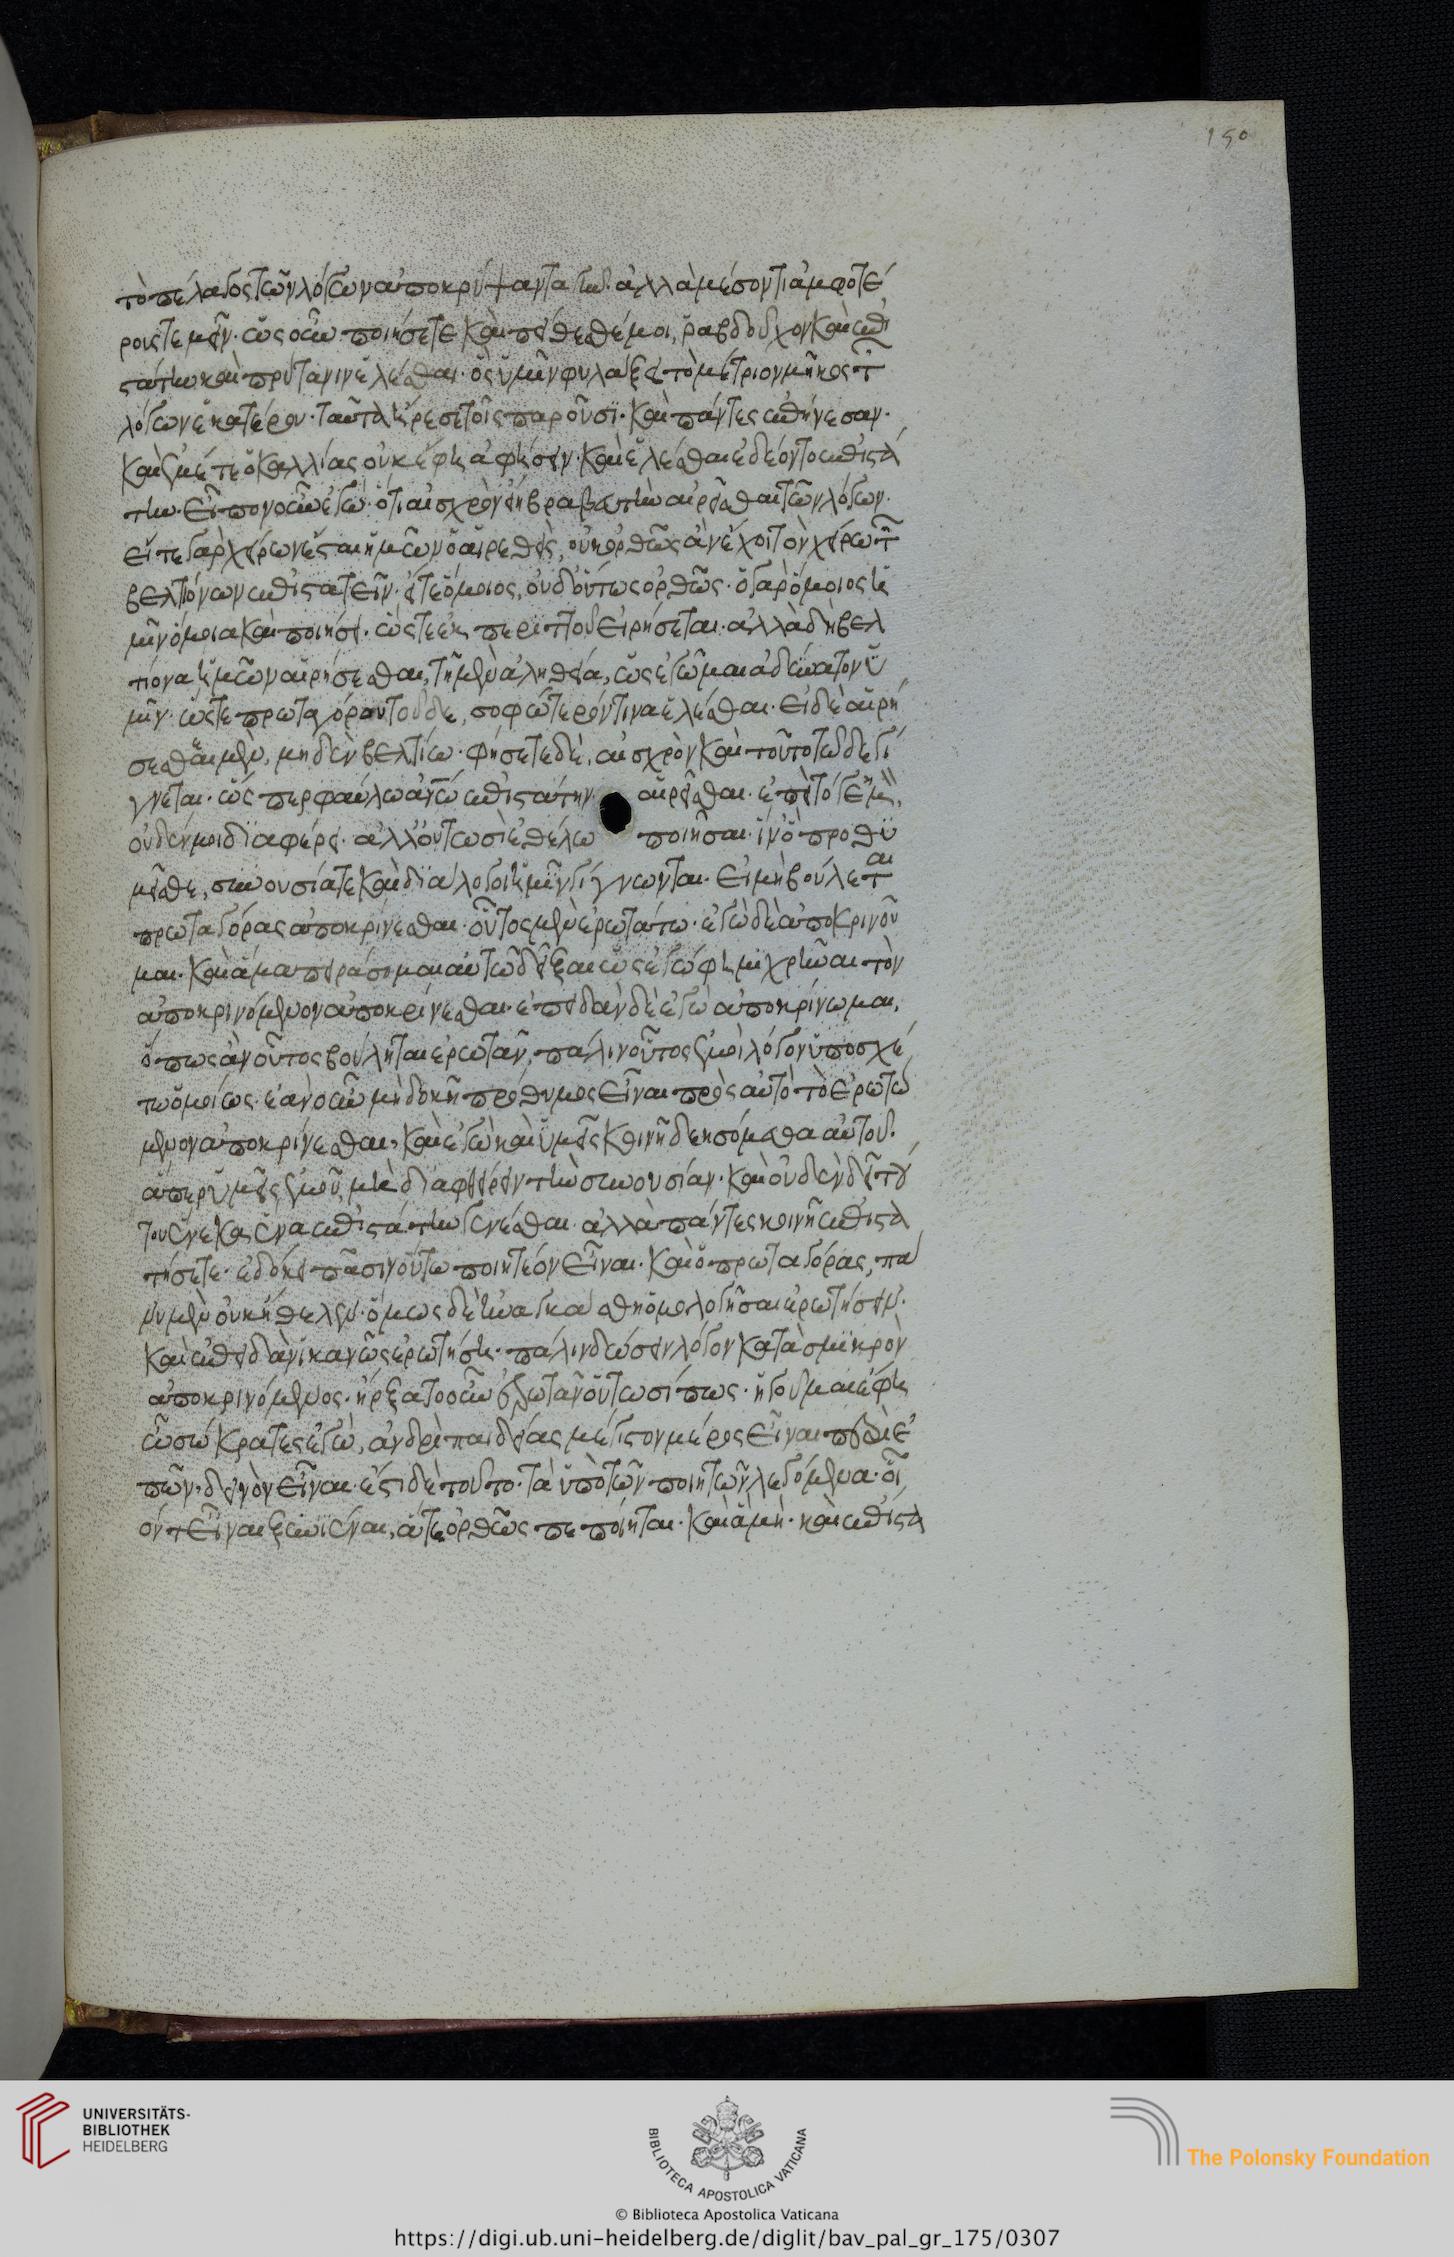 150
τὸ πέλαγος τῶν λόγων ἀποκρύψαντα γῆν. ἀλλὰ μέσον τι ἀμφοτέ
ροις τεμεῖν. ὣς οὖν ποιήσετε καὶ πείθεσθέ μοι, ῥαβδοῦχον καὶ ἐπι
στάτην καὶ πρύτανιν ἑλέσθαι. ὃς ὑμῖν φυλάξει τὸ μέτριον μῆκος τῶν
λόγων ἑκατέρου. ταῦτα ἤρεσε τοῖς παροῦσι. καὶ πάντες ἐπήνεσαν.
καὶ ἐμέ τε ὁ καλλίας οὐκ ἔφη ἀφήσειν. καὶ ἑλέσθαι ἐδέοντο ἐπιστά
την. εἶπον οὖν ἐγώ. ὅτι αἰσχρὸν εἴη βραβευτὴν αἱρεῖσθαι τῶν λόγων.
εἴτε γὰρ χείρων ἔσται ἡμῶν ὁ αἱρεθείς, οὐκ ὀρθῶς ἂν ἔχοι τὸν χείρω τῶν
βελτιόνων ἐπιστατεῖν. εἴτε ὅμοιος, οὐδ' οὕτως ὀρθῶς. ὁ γὰρ ὅμοιος ἡ
μῖν ὅμοια καὶ ποιήσει. ὥστε ἐκ περιττοῦ εἰρήσεται. ἀλλὰ δὴ βελ
τίονα ἡμῶν αἱρήσεσθαι, τῇ μὲν ἀληθείᾳ, ὡς ἐγᾦμαι ἀδύνατον ὑ
μῖν. ὥστε πρωταγόρου τοῦδε, σοφώτερόν τινα ἑλέσθαι. εἰ δὲ αἱρή
σεσθε μὲν, μηδὲν βελτίω. φήσετε δέ, αἰσχρὸν καὶ τοῦτο τῷδε γί
γνεται. ὥσπερ φαύλῳ ἀνθρώπῳ ἐπιστάτην αἱρεῖσθαι. ἐπεὶ τό γε ἐμὸν,
οὐδέν μοι διαφέρει. ἀλλ' οὑτωσὶ ἐθέλω ποιῆσαι. ἵν' ὃ προθυ
μεῖσθε, συνουσία τε καὶ διάλογοι ἡμῖν γίγνωνται. εἰ μὴ βούλεται
πρωταγόρας ἀποκρίνεσθαι. οὗτος μὲν ἐρωτάτω. ἐγὼ δὲ ἀποκρινοῦ
μαι. καὶ ἅμα πειράσομαι αὐτῷ δεῖξαι ὡς ἐγώ φημι χρῆναι τὸν
ἀποκρινόμενον ἀποκρίνεσθαι. ἐπειδὰν δὲ ἐγὼ ἀποκρίνωμαι,
ὁπόσ' ἂν οὗτος βούληται ἐρωτᾶν, πάλιν οὗτος ἐμοὶ λόγον ὑποσχέ
τω ὁμοίως. ἐὰν οὖν μὴ δοκῇ πρόθυμος εἶναι πρὸς αὐτὸ τὸ ἐρωτώ
μενον ἀποκρίνεσθαι, καὶ ἐγὼ καὶ ὑμεῖς κοινῇ δεησόμεθα αὐτοῦ.
ἅπερ ὑμεῖς ἐμοῦ, μὴ διαφθείρειν τὴν συνουσίαν. καὶ οὐδὲν δεῖ τού
του ἕνεκα ἕνα ἐπιστάτην γενέσθαι. ἀλλὰ πάντες κοινῇ ἐπιστα
τήσετε. ἐδόκει πᾶσιν οὕτω ποιητέον εἶναι. καὶ ὁ πρωταγόρας, πά
νυ μὲν οὐκ ἤθελεν. ὅμως δὲ ἠναγκάσθη ὁμολογῆσαι ἐρωτήσειν.
καὶ ἐπειδὰν ἱκανῶς ἐρωτήσῃ. πάλιν δώσειν λόγον κατὰ σμικρὸν
ἀποκρινόμενος. ἤρξατο οὖν ἐρωτᾶν οὑτωσί πως. ἡγοῦμαι ἔφη
ὦ σώκρατες ἐγὼ, ἀνδρὶ παιδείας μέγιστον μέρος εἶναι περὶ ἐ
πῶν, δεινὸν εἶναι. ἔστι δὲ τοῦτο. τὰ ὑπὸ τῶν ποιητῶν λεγόμενα. οἷ
όν τ' εἶναι ξυνιέναι, ἅ τε ὀρθῶς πεποίηται. καὶ ἃ μή. καὶ ἐπίστα
UNIVERSITÄTS-
BIBLIOTHEK
HEIDELBERG
BIBLIOTECA APOSTOLICA VATICANA
The Polonsky Foundation
© Biblioteca Apostolica Vaticana
https://digi.ub.uni-heidelberg.de/diglit/bav_pal_gr_175/0307